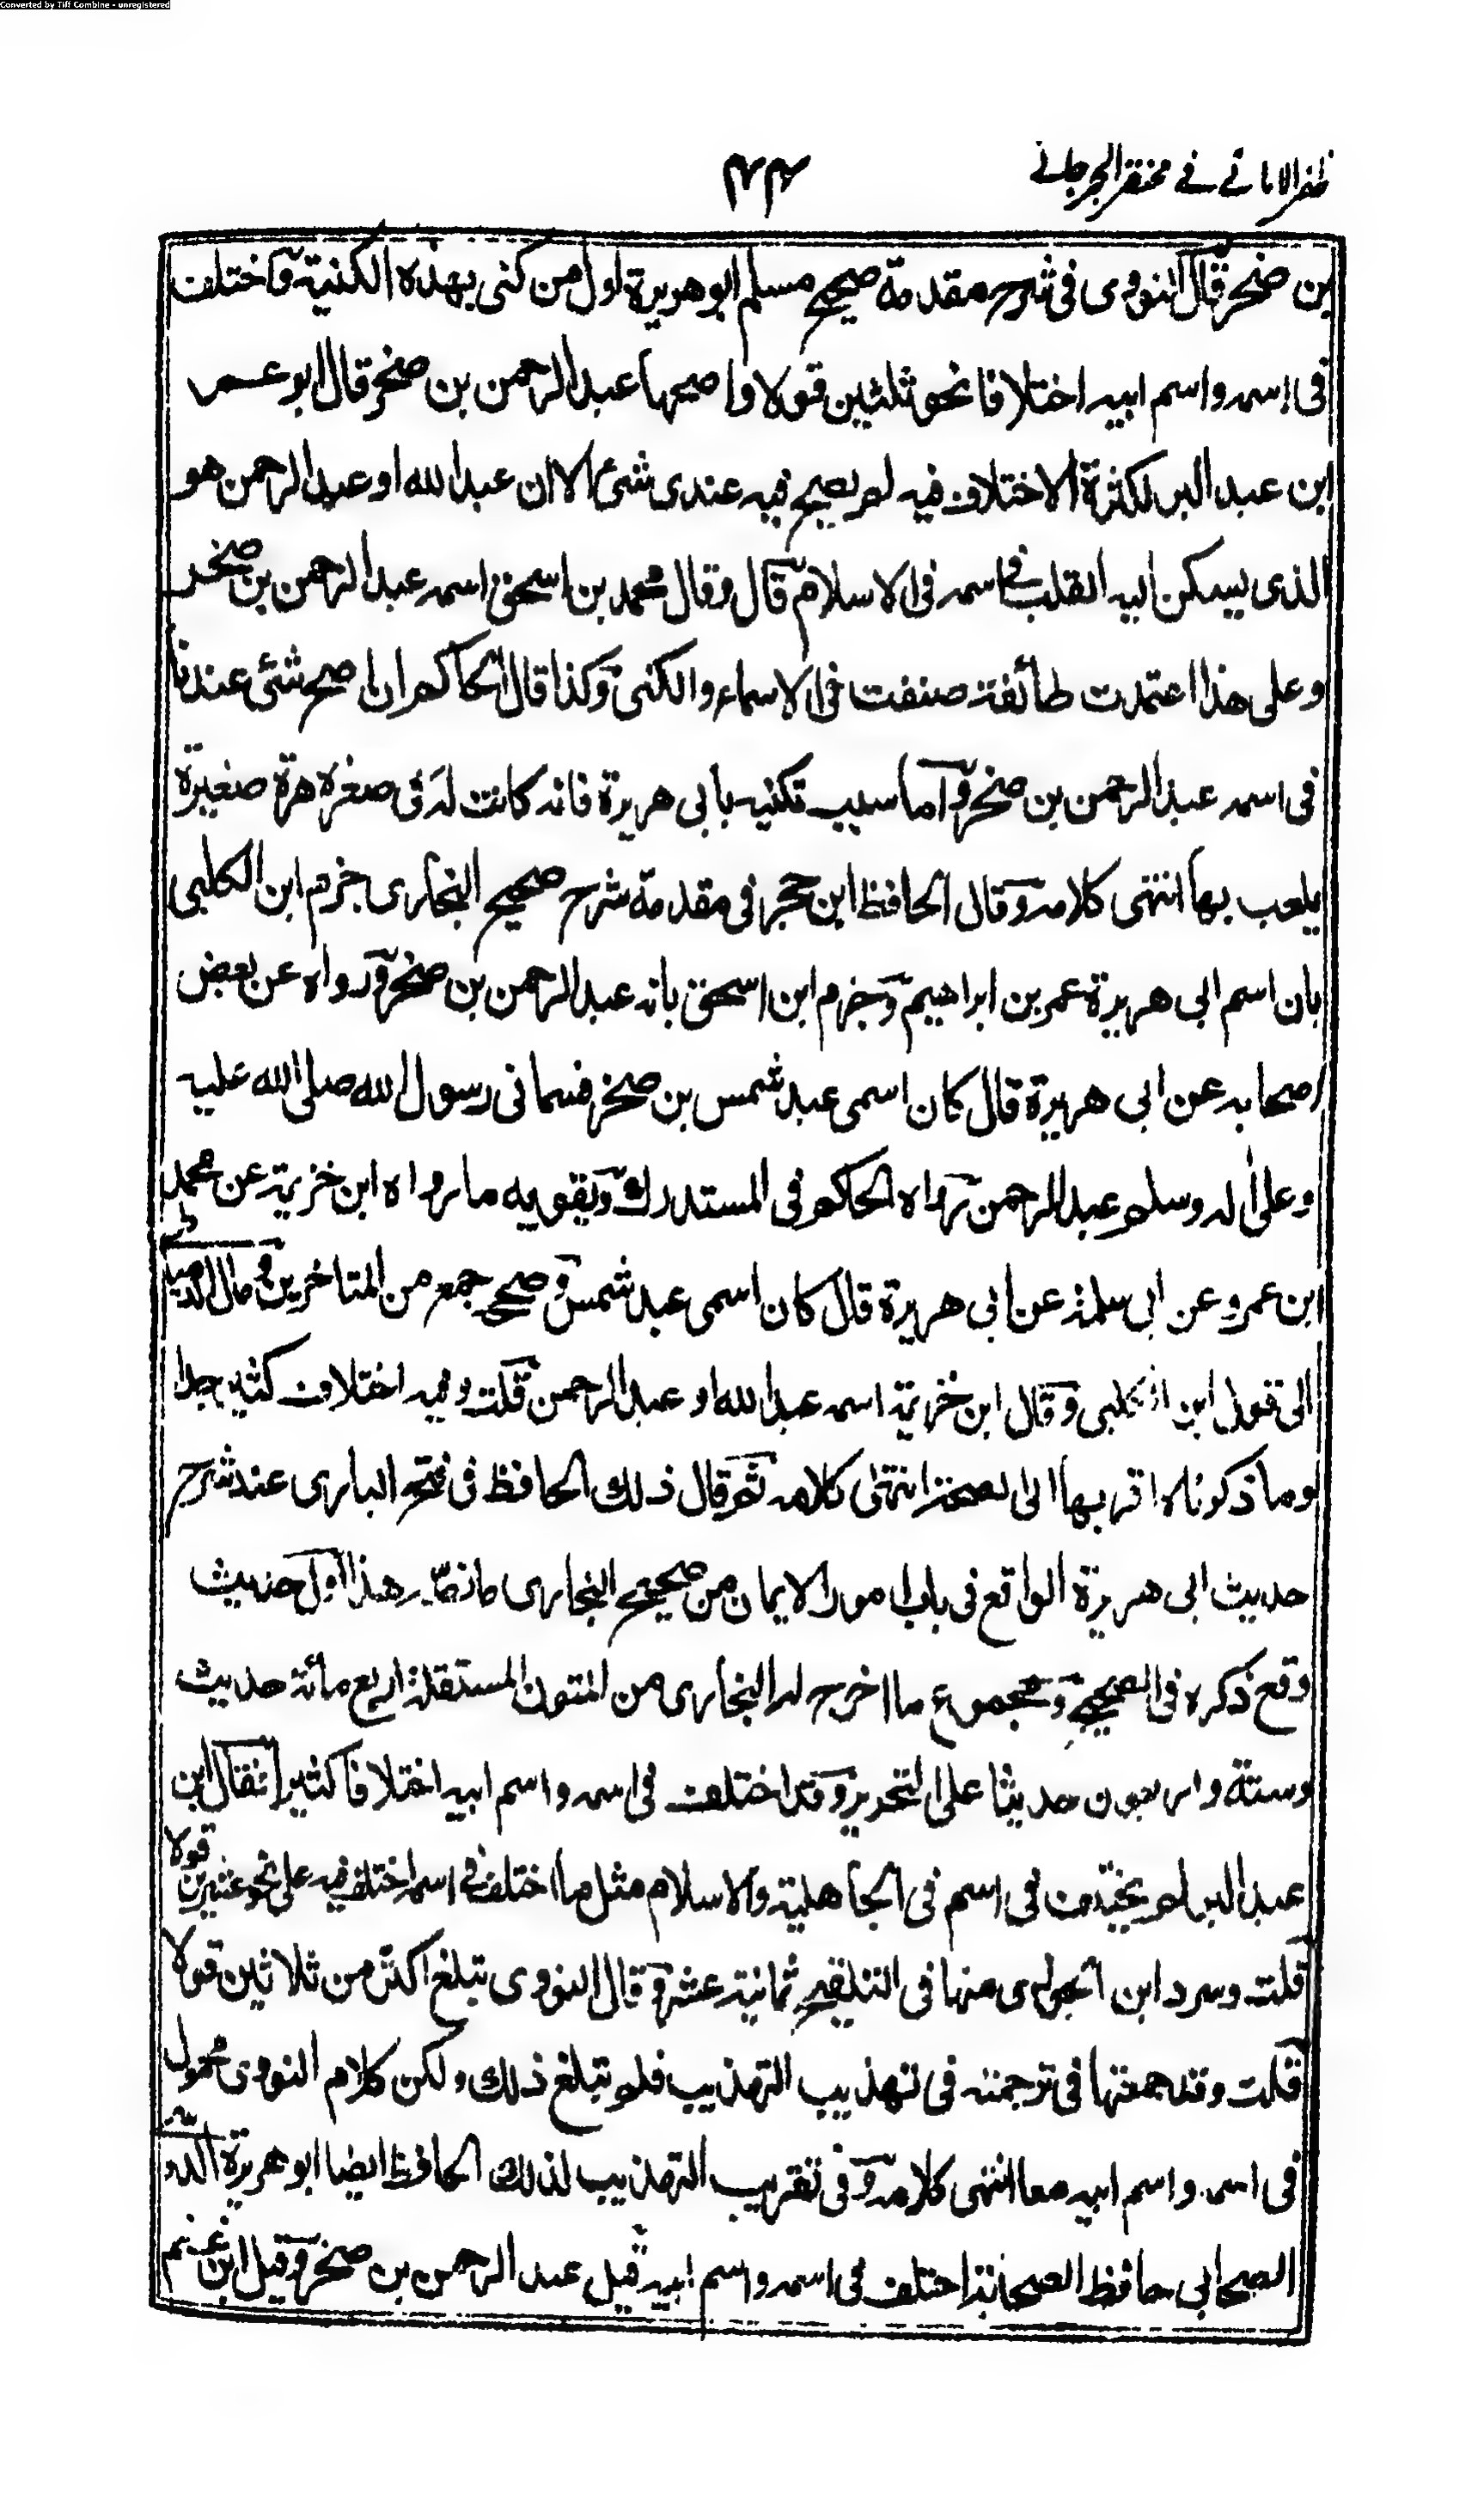 Converted by Tiff Combine - unregistered
ظفر الامانے فے مختصر الجرجانے
۴۴
بن صخر قال النووى فى شرح مقدمة صحيح مسلم ابو هريرة اول من كنى بهذه الكنية واختلف
فى اسمه واسم ابيه اختلافا نحو ثلثين قولا واصحها عبد الرحمن بن صخر قال ابو عمر
ابن عبد البر لكثرة الاختلاف فيه لم يصح فيه عندى شئ الا ان عبد الله او عبد الرحمن هو
الذى يسكن اليه القلب فى اسمه فى الاسلام قال وقال محمد بن اسحق اسمه عبد الرحمن بن صخر
وعلى هذا اعتمدت طائفة صنفت فى الاسماء والكنى وكذا قال الحاكم ان اصح شئ عندنا
فى اسمه عبد الرحمن بن صخر واما سبب تكنيه بابى هريرة فانه كانت له فى صغره هرة صغيرة
يلعب بها انتهى كلامه وقال الحافظ ابن حجر فى مقدمة شرح صحيح البخارى جزم ابن الكلبى
بان اسم ابى هريرة عمر بن ابراهيم وجزم ابن اسحق بانه عبد الرحمن بن صخر ورواه عن بعض
اصحابه عن ابى هريرة قال كان اسمى عبد شمس بن صخر فسمانى رسول الله صلى الله عليه
وعلى اله وسلم عبد الرحمن رواه الحاكم فى المستدرك ويقويه ما رواه ابن خزيمة عن محمد
ابن عمرو عن ابى سلمة عن ابى هريرة قال كان اسمى عبد شمس وصحح جمع من المتاخرين ومال الدمياطى
الى قول ابن الكلبى وقال ابن خزيمة اسمه عبد الله او عبد الرحمن قلت وفيه اختلاف كثير جدا
وما ذكرناه اقربها الى الصحة انتهى كلامه ثم قال ذلك الحافظ فى فتح البارى عند شرح
حديث ابى هريرة الواقع فى باب امور الايمان من صحيح البخارى ما نصه هذا اول حديث
وقع ذكره فى الصحيح ومجموع ما اخرج له البخارى من المتون المستقلة اربع مائة حديث
وستة واربعون حديثا على التحرير وقد اختلف فى اسمه واسم ابيه اختلافا كثيرا فقال ابن
عبد البر لم يختلف فى اسم فى الجاهلية والاسلام مثل ما اختلف فى اسمه اختلف فيه على نحو عشرين قولا
قلت وسرد ابن الجوزى منها فى التلقيح ثمانية عشر وقال النووى تبلغ اكثر من ثلاثين قولا
قلت وقد جمعتها فى ترجمته فى تهذيب التهذيب فلم تبلغ ذلك ولكن كلام النووى محمول
فى اسمه واسم ابيه معا انتهى كلامه وفى تقريب التهذيب لذلك الحافظ ايضا ابو هريرة الدوسى
الصحابى حافظ الصحابة اختلف فى اسمه واسم ابيه قيل عبد الرحمن بن صخر وقيل ابن غنم